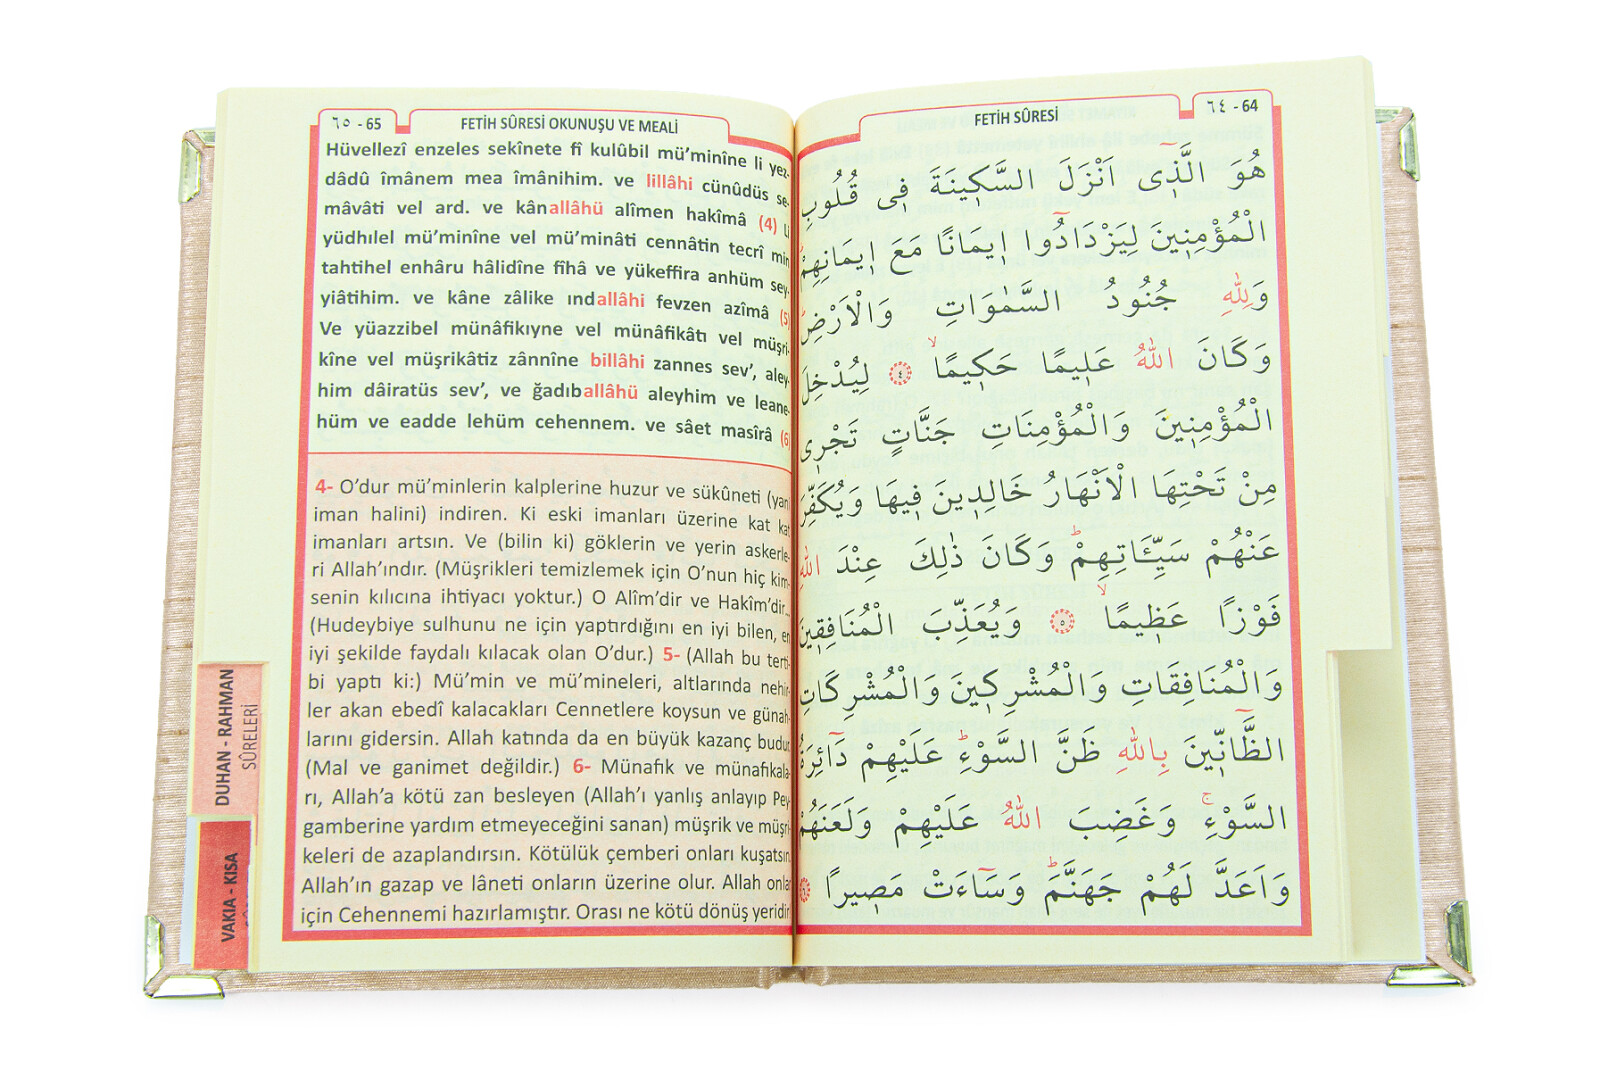 ٦٤ - 64
FETİH SÛRESİ
هُوَ الَّذ۪ٓي اَنْزَلَ السَّك۪ينَةَ ف۪ي قُلُوبِ
الْمُؤْمِن۪ينَ لِيَزْدَادُٓوا ا۪يمَانًا مَعَ ا۪يمَانِهِمْ
وَلِلّٰهِ جُنُودُ السَّمٰوَاتِ وَالْاَرْضِ
وَكَانَ اللّٰهُ عَل۪يمًا حَك۪يمًاۙ ٤ لِيُدْخِلَ
الْمُؤْمِن۪ينَ وَالْمُؤْمِنَاتِ جَنَّاتٍ تَجْر۪ي
مِنْ تَحْتِهَا الْاَنْهَارُ خَالِد۪ينَ ف۪يهَا وَيُكَفِّرَ
عَنْهُمْ سَيِّـَٔاتِهِمْۜ وَكَانَ ذٰلِكَ عِنْدَ اللّٰهِ
فَوْزًا عَظ۪يمًاۙ ٥ وَيُعَذِّبَ الْمُنَافِق۪ينَ
وَالْمُنَافِقَاتِ وَالْمُشْرِك۪ينَ وَالْمُشْرِكَاتِ
الظَّٓانّ۪ينَ بِاللّٰهِ ظَنَّ السَّوْءِۜ عَلَيْهِمْ دَٓائِرَةُ
السَّوْءِۚ وَغَضِبَ اللّٰهُ عَلَيْهِمْ وَلَعَنَهُمْ
وَاَعَدَّ لَهُمْ جَهَنَّمَۜ وَسَٓاءَتْ مَص۪يرًا ٦
٦٥ - 65
FETİH SÛRESİ OKUNUŞU VE MEALİ
Hüvellezî enzeles sekînete fî kulûbil mü’minîne li yez-
dâdû îmânem mea îmânihim. ve lillâhi cünûdüs se-
mâvâti vel ard. ve kânallâhü alîmen hakîmâ (4) Li
yüdhılel mü’minîne vel mü’minâti cennâtin tecrî min
tahtihel enhâru hâlidîne fîhâ ve yükeffira anhüm sey-
yiâtihim. ve kâne zâlike ındallâhi fevzen azîmâ (5)
Ve yüazzibel münâfikıyne vel münâfikâti vel müşri-
kîne vel müşrikâtiz zânnîne billâhi zannes sev’, aley-
him dâiratüs sev’, ve ğadıballâhü aleyhim ve leane-
hüm ve eadde lehüm cehennem. ve sâet masîrâ (6)
4- O’dur mü’minlerin kalplerine huzur ve sükûneti (yani
iman halini) indiren. Ki eski imanları üzerine kat kat
imanları artsın. Ve (bilin ki) göklerin ve yerin askerle-
ri Allah’ındır. (Müşrikleri temizlemek için O’nun hiç kim-
senin kılıcına ihtiyacı yoktur.) O Alîm’dir ve Hakîm’dir...
(Hudeybiye sulhunu ne için yaptırdığını en iyi bilen, en
iyi şekilde faydalı kılacak olan O’dur.) 5- (Allah bu terti-
bi yaptı ki:) Mü’min ve mü’mineleri, altlarında nehir-
ler akan ebedî kalacakları Cennetlere koysun ve günah-
larını gidersin. Allah katında da en büyük kazanç budur.
(Mal ve ganimet değildir.) 6- Münafık ve münafıkala-
rı, Allah’a kötü zan besleyen (Allah’ı yanlış anlayıp Pey-
gamberine yardım etmeyeceğini sanan) müşrik ve müşri-
keleri de azaplandırsın. Kötülük çemberi onları kuşatsın.
Allah’ın gazap ve lâneti onların üzerine olur. Allah onlar
için Cehennemi hazırlamıştır. Orası ne kötü dönüş yeridir.
DUHAN - RAHMAN
SÛRELERİ
VAKIA - KISA